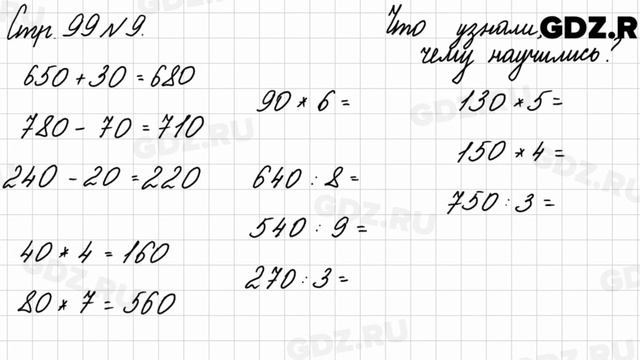 Стр. 99 № 9.
650 + 30 = 680
780 - 70 = 710
240 - 20 = 220
40 * 4 = 160
80 * 7 = 560
90 * 6 =
640 : 8 =
540 : 9 =
270 : 3 =
Что узнали,
чему научились?
130 * 5 =
150 * 4 =
750 : 3 =
GDZ.RU
GDZ.RU
GDZ.RU
GDZ.RU
GDZ.RU
GDZ.RU
GDZ.RU